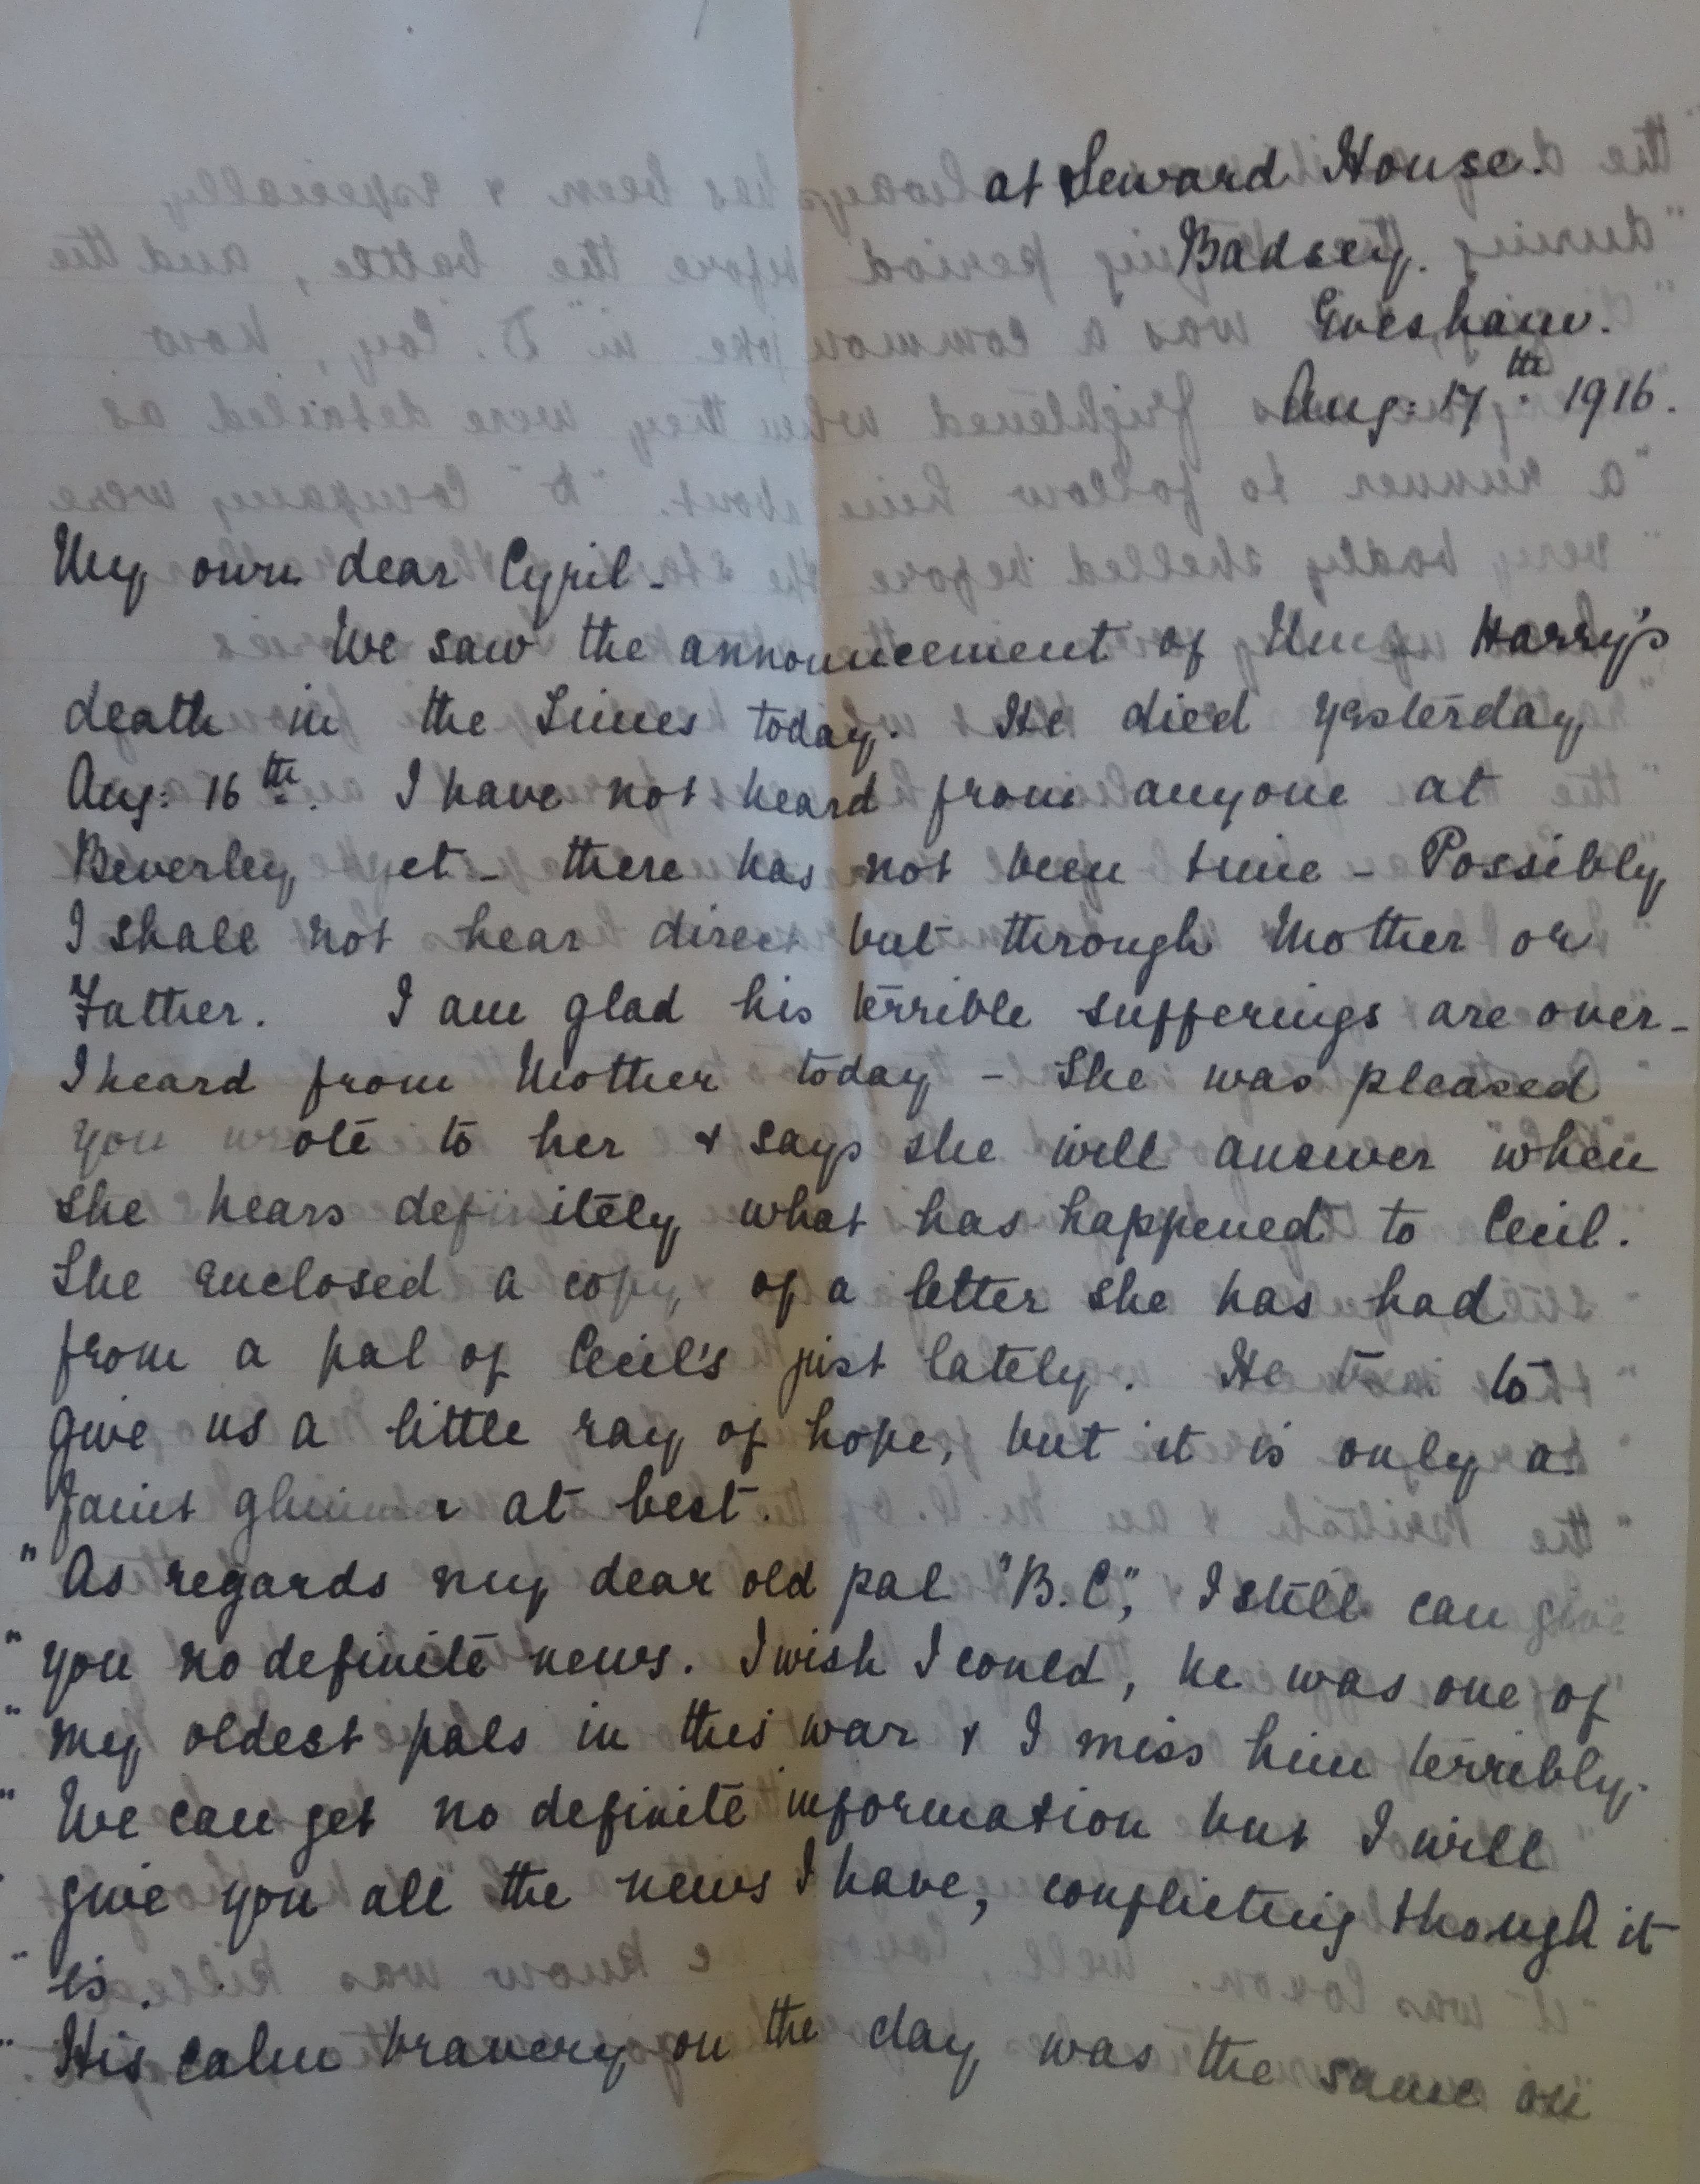 at Seward House.
Badsey.
Evesham.
Aug: 17th. 1916.
My own dear Cyril -
We saw the announcement of Unc Harry's
death in the Times today. He died yesterday,
Aug: 16th. I have not heard from anyone at
Beverley et - there has not been time - Possibly
I shall not hear direct but through Mother or
Father. I am glad his terrible sufferings are over -
I heard from Mother today - She was pleased
you wrote to her & says she will answer when
she hears definitely what has happened to Cecil.
She enclosed a copy of a letter she has had
from a pal of Cecil's just lately. He to
give us a little ray of hope, but it is only a
faint glimmer at best.
" As regards my dear old pal "B.C", I still can give
" you no definite news. I wish I could, he was one of
" my oldest pals in this war & I miss him terribly.
" We can get no definite information but I will
" give you all the news I have, conflicting though it
" is.
" His calm bravery on the day was the same as